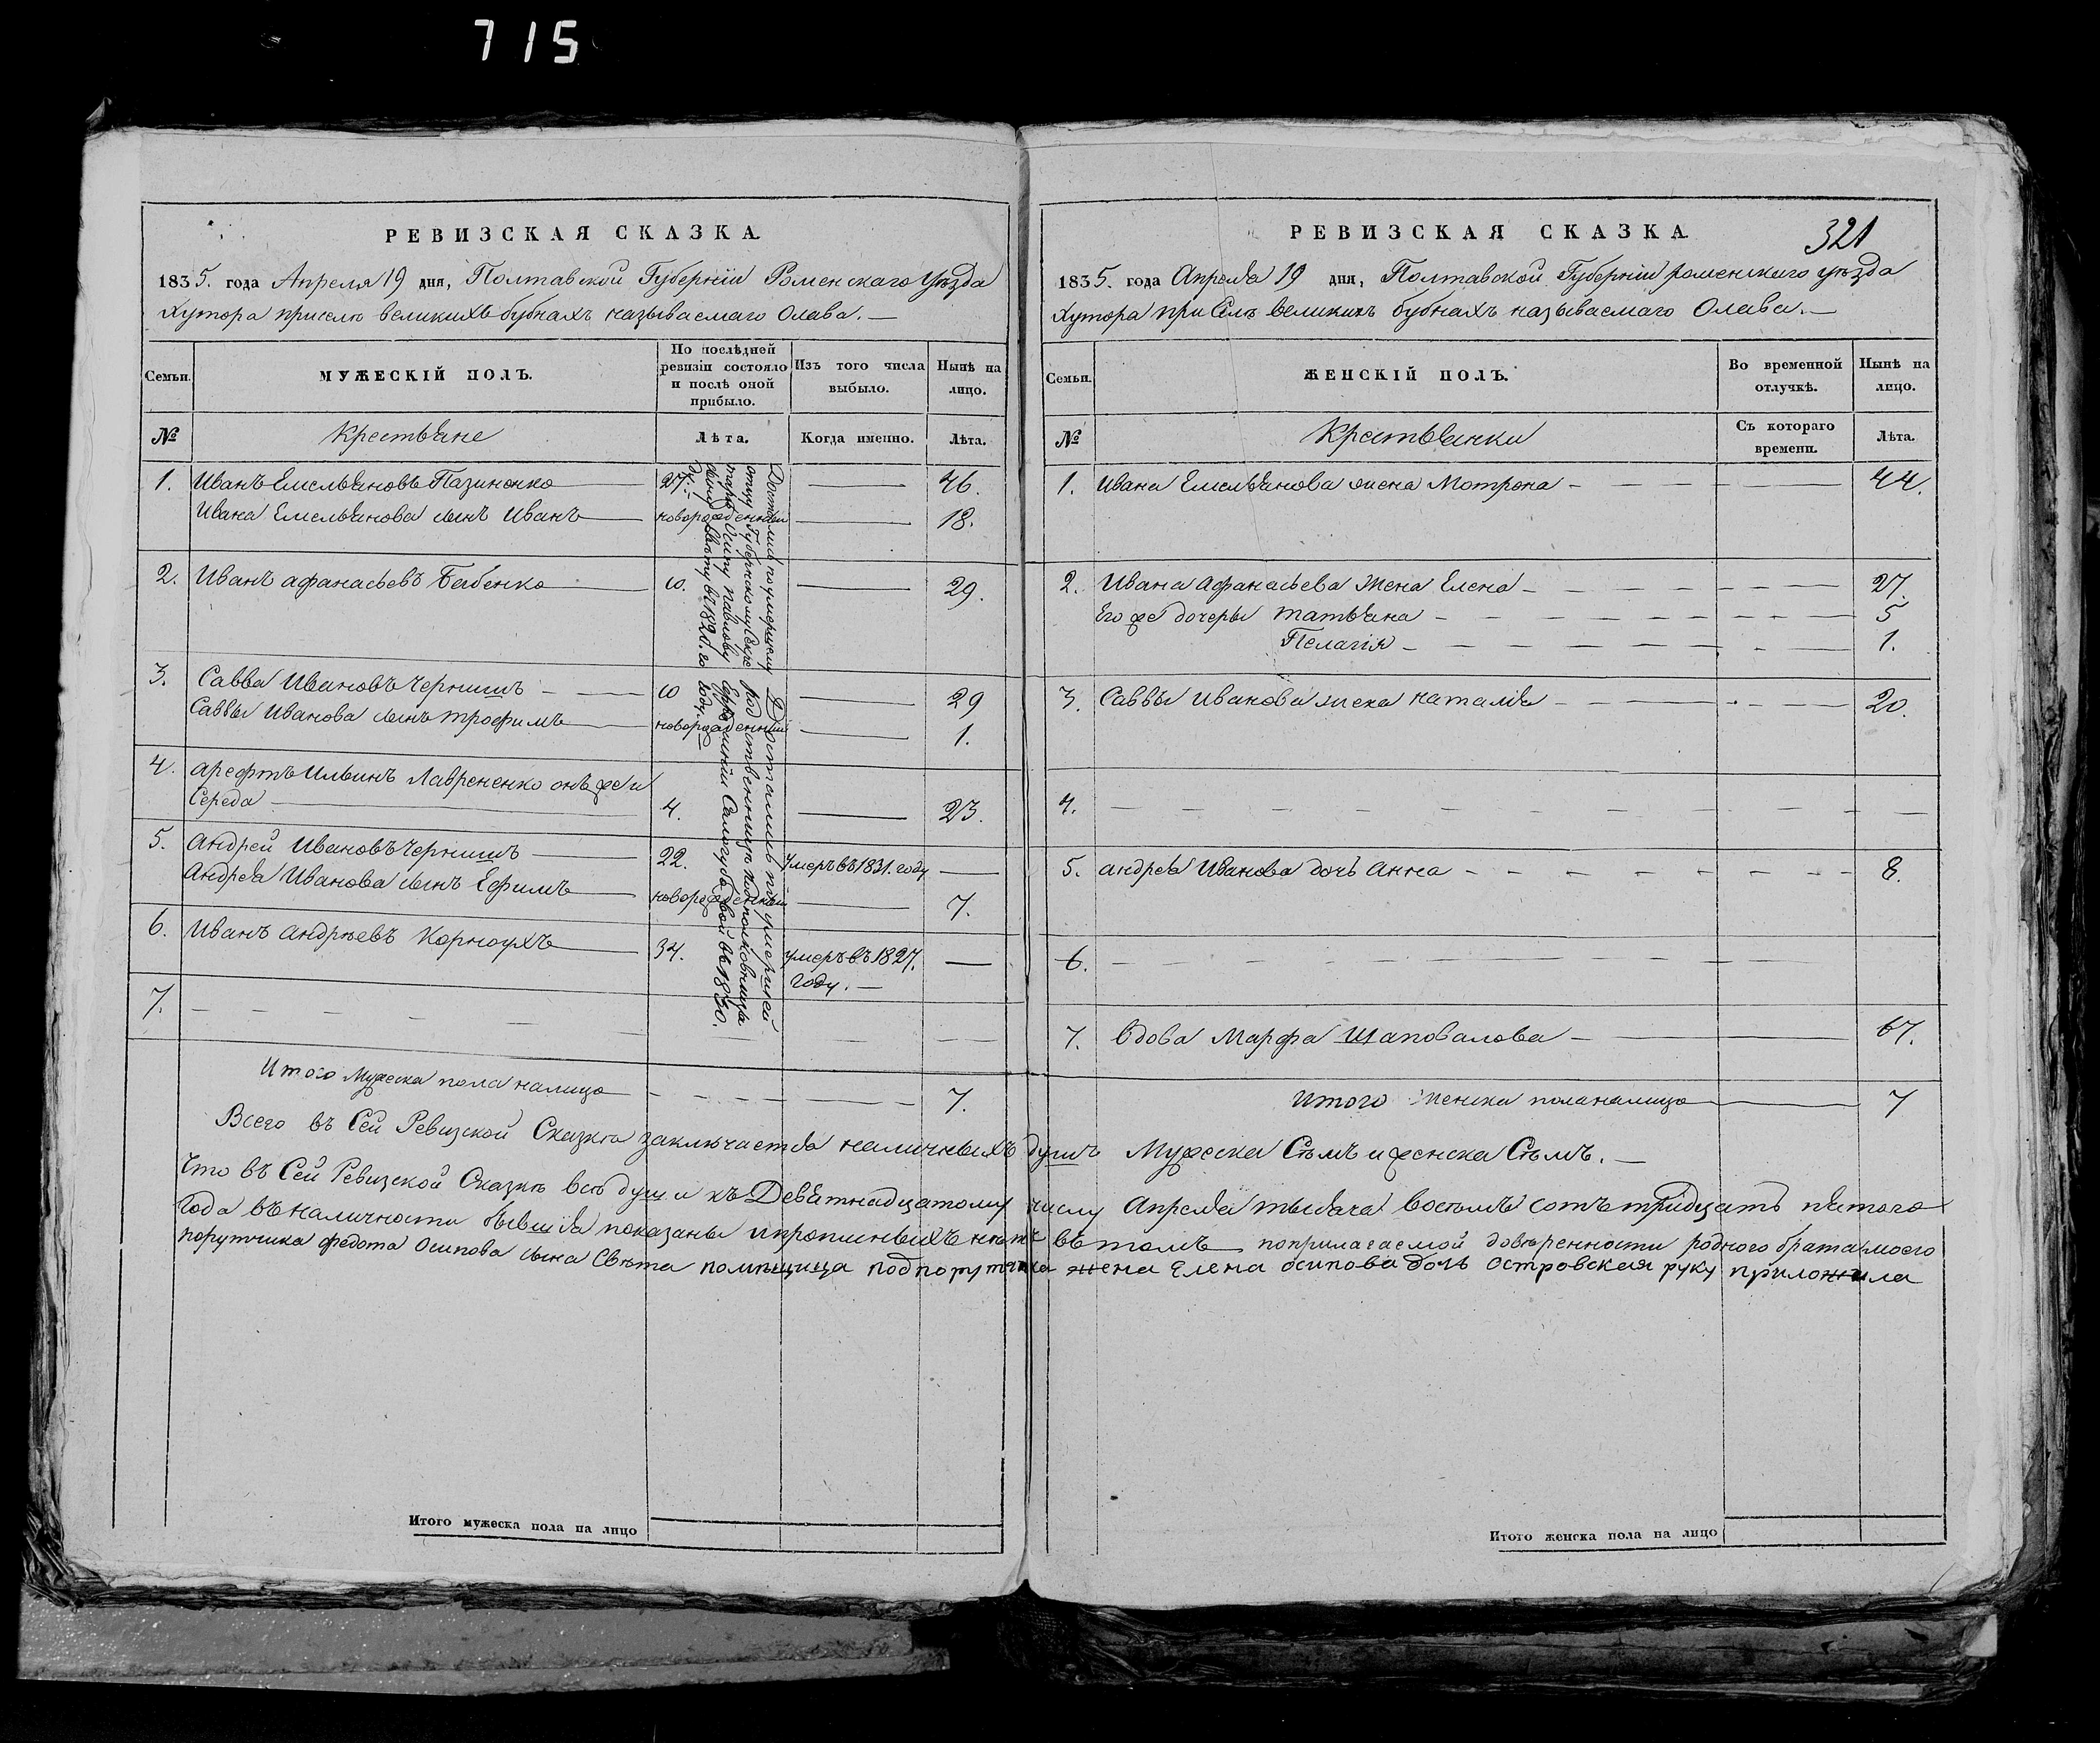 715
РЕВИЗСКАЯ СКАЗКА.
1835. года Апреля 19 дня, Полтавской Губерніи Роменскаго Уѣзда
Хутора приселѣ великихъ бубнахъ называемаго Олава. —
Семьи.
МУЖЕСКІЙ ПОЛЪ.
По послѣдней ревизіи состояло и послѣ оной прибыло.
Изъ того числа выбыло.
Нынѣ на лицо.
№
Крестьяне
Лѣта.
Когда именно.
Лѣта.
1. Иванъ Емельяновъ Пазиненко 27. — 46.
Ивана Емельянова сынъ Иванъ новорожденный — 18.
2. Иванъ Афанасьевъ Бабенко 10. — 29.
3. Савва Ивановъ Чернишъ 10 — 29
Саввы Иванова сынъ Трофимъ новорожденный — 1.
4. Арефтъ Ильинъ Лаврененко онъ же и
Середа 4. — 23.
5. Андрей Ивановъ Чернишъ 22. Умеръ въ 1831. году —
Андрея Иванова сынъ Ефимъ новорожденный — 7.
6. Иванъ Андрѣевъ Корноухъ 34. умеръ въ 1827. —
году. —
7. — — — — —
Достались по умершему
отцу Губернскому Секре
тарю Осипу Павлову
сыну Свѣту въ 1821. го
ду.
Достались по умершей
родственницы подполковницы
Евфросиніи Самогубовой въ 1830.
году.
Итого Мужеска пола налицо — 7.
РЕВИЗСКАЯ СКАЗКА
321
1835. года Апреля 19 дня, Полтавской Губерніи роменскаго уѣзда
Хутора при Селѣ великихъ бубнахъ называемаго Олава. —
Семьи.
ЖЕНСКІЙ ПОЛЪ.
Во временной отлучкѣ.
Нынѣ на лицо.
№
Крестьянки
Съ котораго времени.
Лѣта.
1. Ивана Емельянова жена Мотрона — 44.
2. Ивана Афанасьева жена Елена — 27.
Его же дочеры Татьяна — 5
Пелагія — 1.
3. Саввы Иванова жена Наталія — 20.
4. — — — — —
5. Андрея Иванова дочь Анна — 8.
6. — — — — —
7. Вдова Марфа Шаповалова — 67.
Итого женска пола налицо — 7
Всего въ Сей Ревизской Сказкѣ заключается наличныхъ душъ Мужеска Сѣмъ и женска Сѣмъ. —
Что въ Сей Ревизской Сказкѣ всѣ души къ Девятнадцатому числу Апреля тысяча восемъ сотъ тридцать пятого
Года въ наличности бывшія показаны и прописныхъ нѣтъ въ томъ поприлагаемой довѣренности родного брата моего
порутчика Федота Осипова сына Свѣта помѣщица подпорутчика жена Елена Осипова дочь Островская руку приложила
Итого мужеска пола на лицо
Итого женска пола на лицо